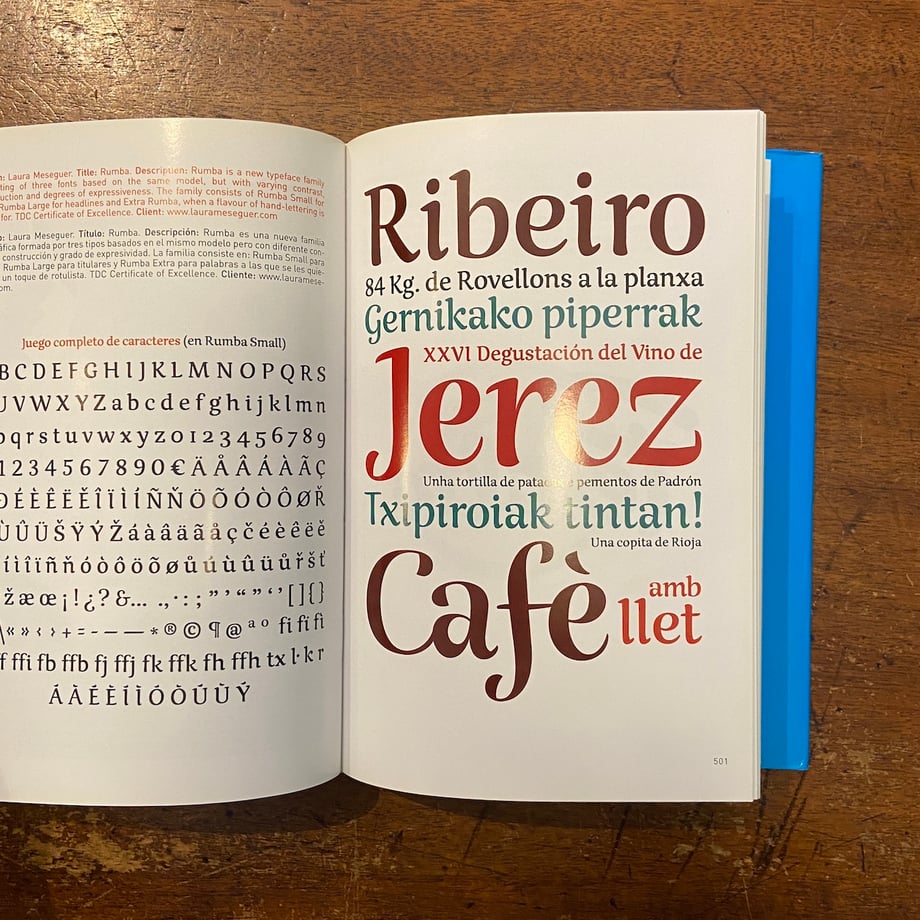 n: Laura Meseguer. Title: Rumba. Description: Rumba is a new typeface family
ting of three fonts based on the same model, but with varying contrast,
uction and degrees of expressiveness. The family consists of Rumba Small for
Rumba Large for headlines and Extra Rumba, when a flavour of hand-lettering is
for. TDC Certificate of Excellence. Client: www.laurameseguer.com
o: Laura Meseguer. Título: Rumba. Descripción: Rumba es una nueva familia
áfica formada por tres tipos basados en el mismo modelo pero con diferente con-
construcción y grado de expresividad. La familia consiste en: Rumba Small para
Rumba Large para titulares y Rumba Extra para palabras a las que se les quie-
un toque de rotulista. TDC Certificate of Excellence. Cliente: www.laurame-
om.
Juego completo de caracteres (en Rumba Small)
BCDEFGHIJKLMNOPQRS
UVWXYZabcdefghijklmn
pqrstuvwxyz0123456789
1234567890€ÄÅÂÁÀÃÇ
ÐÉÈÊËĚÎÏÌÍÑŇÖÕÓÒÔØŘ
ÙÛÜŠŸÝŽáàâäãåçčéèêëě
íìîïñňóòôöõøůúùûüůřšť
žæœ¡!¿?&… .,·:;"'"“"‘'[]{}
\«»‹›+=-–—*®©¶@ªº fi fi fi
f ffi fb ffb fj ffj fk ffk fh ffh tx l· k r
ÁÀÉÈÍÌÓÒÚÙÝ
Ribeiro
84 Kg. de Rovellons a la planxa
Gernikako piperrak
XXVI Degustación del Vino de
Jerez
Unha tortilla de patacas e pementos de Padrón
Txipiroiak tintan!
Una copita de Rioja
Cafè amb
llet
501